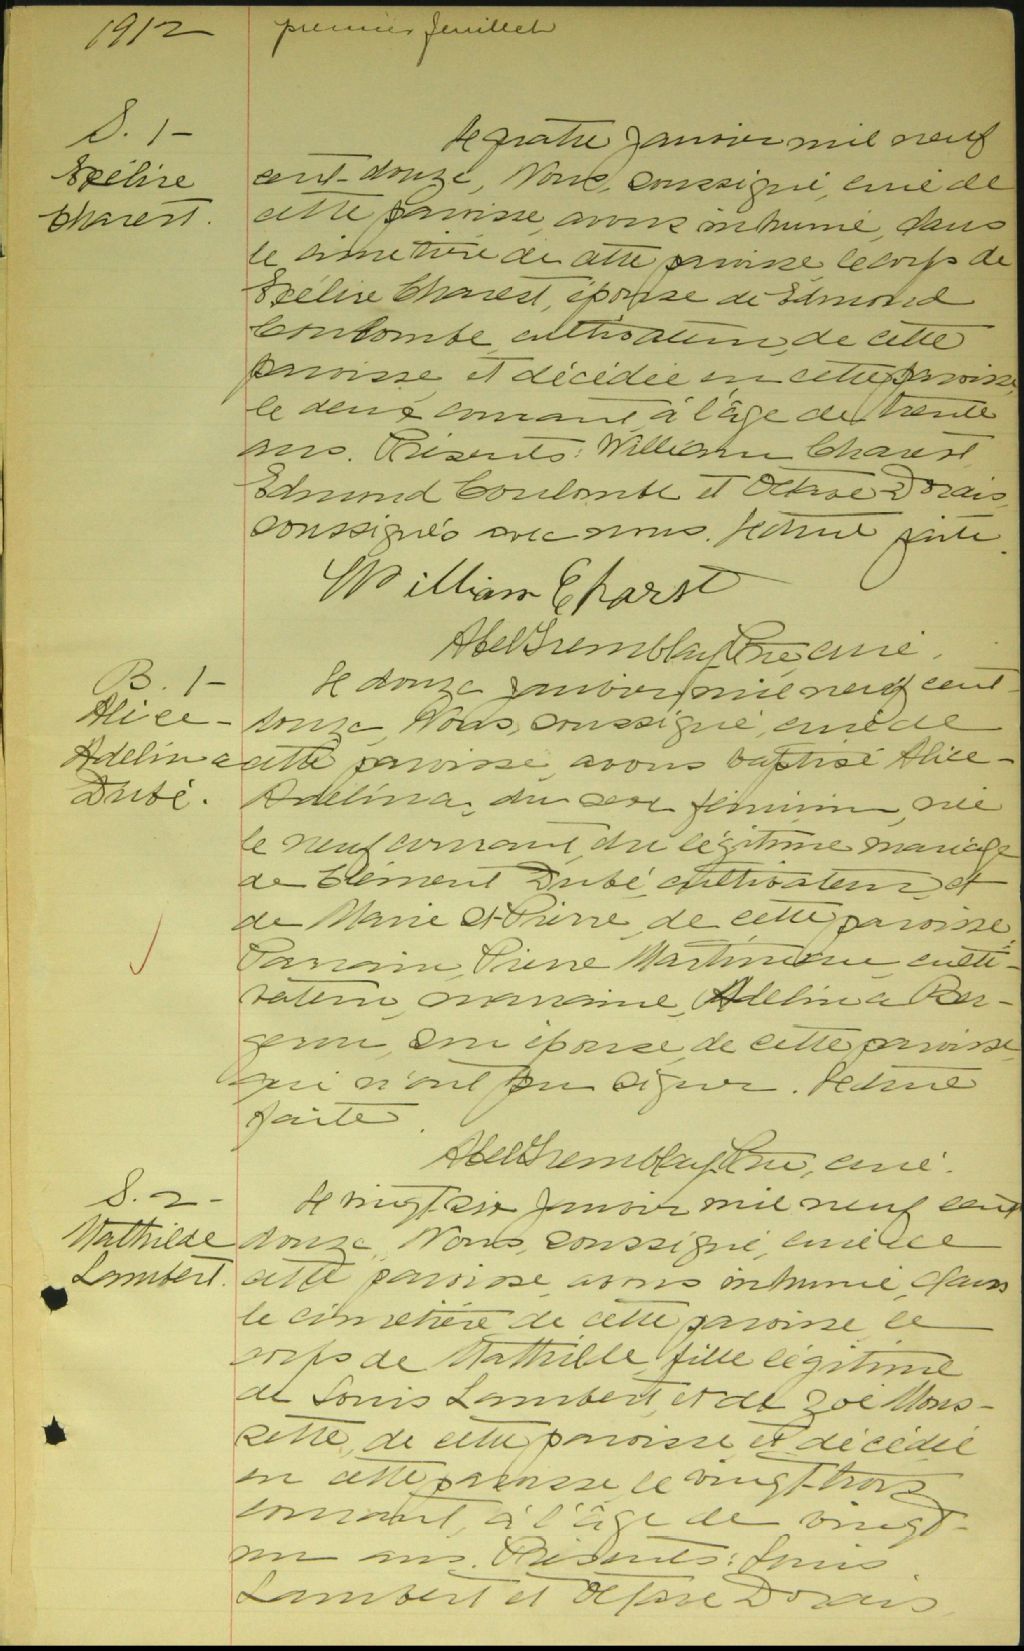 1912
premier feuillet
S. 1-
Exélire
Charest.
Le quatre janvier mil neuf
cent-douze, Nous, soussigné, curé de
cette paroisse, avons inhumé, dans
le cimetière de cette paroisse, le corps de
Exélire Charest, épouse de Edmond
Coulombe, cultivateur, de cette
paroisse, et décédée en cette paroisse,
le deux courant, à l'âge de trente
ans. Présents: William Charest,
Edmond Coulombe et Octave Dorais,
soussignés avec nous. Lecture faite.
William Charst
Abel Tremblay, Ptre, curé.
B. 1-
Alice-
Adelina
Dubé.
Le douze janvier mil neuf cent-
douze, Nous, soussigné, curé de
cette paroisse, avons baptisé Alice-
Adelina, du sexe féminin, née
le neuf courant, du légitime mariage
de Clément Dubé, cultivateur, et
de Marie St-Pierre, de cette paroisse.
Parrain, Pierre Martineau, culti-
vateur, marraine, Adelina Ber-
geron, son épouse, de cette paroisse,
qui n'ont pu signer. Lecture
faite.
Abel Tremblay, Ptre, curé.
S. 2-
Mathilde
Lambert.
Le vingt-six janvier mil neuf cent
douze, Nous, soussigné, curé de
cette paroisse, avons inhumé, dans
le cimetière de cette paroisse, le
corps de Mathilde, fille légitime
de Louis Lambert, et de Zoé Mous-
sette, de cette paroisse, et décédée
en cette paroisse le vingt-trois
courant, à l'âge de vingt-
un ans. Présents: Louis
Lambert et Octave Dorais,